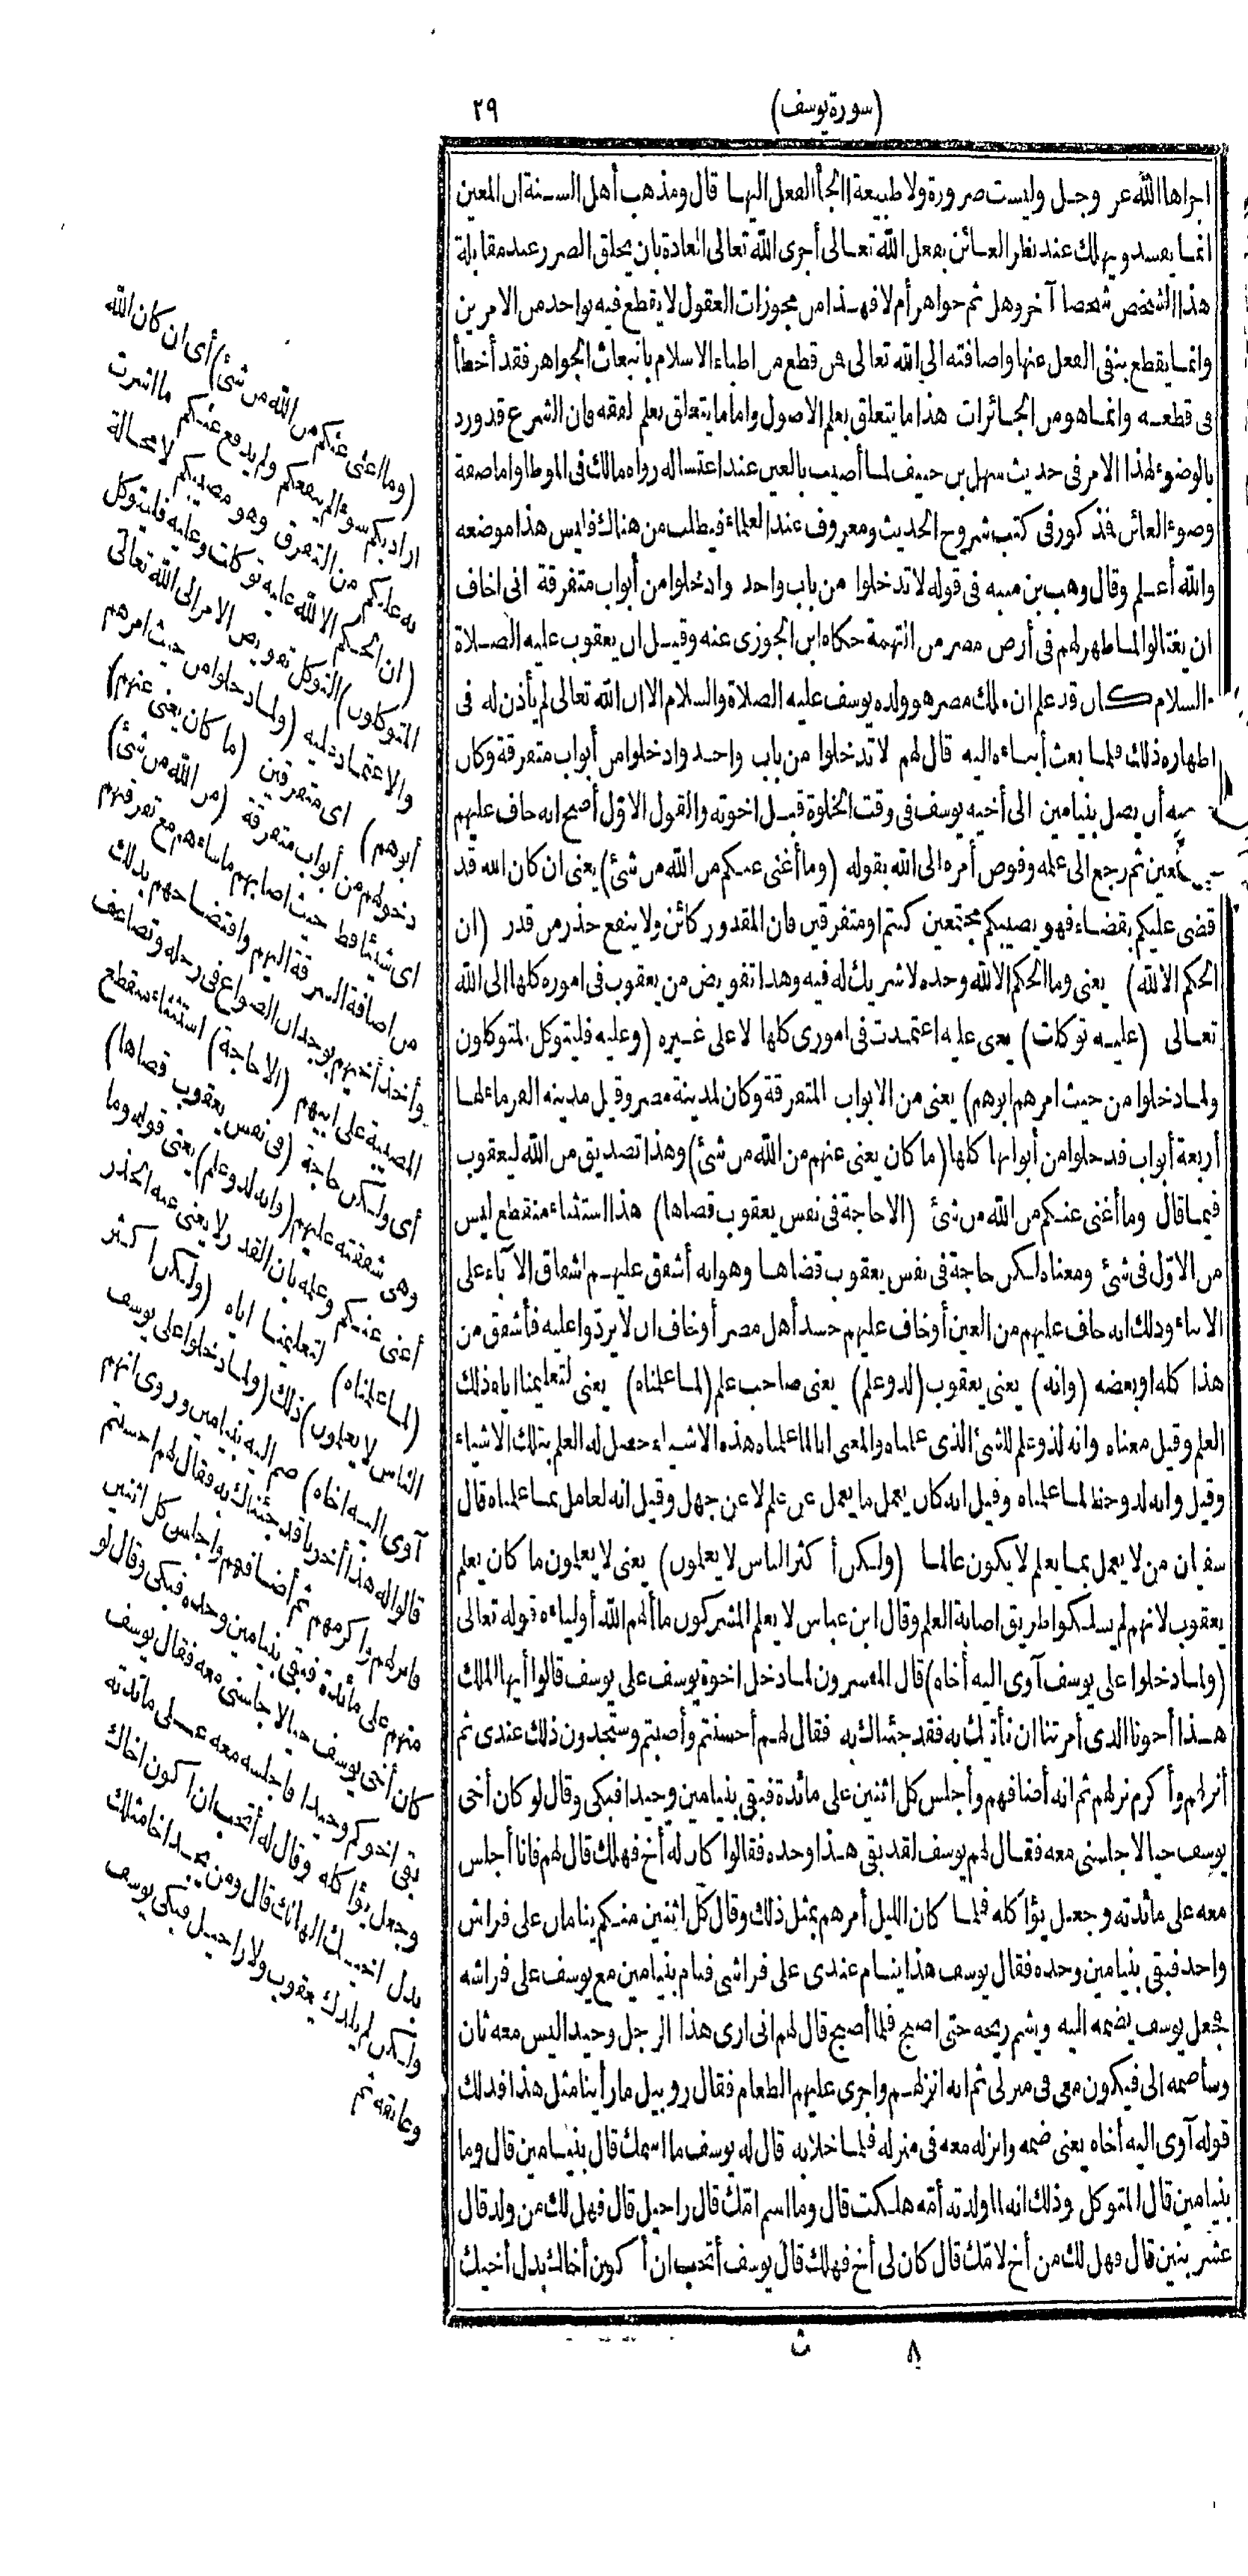 (سورة يوسف)
٢٩
اجراها الله عز وجل وليست ضرورة ولا طبيعة الجأ الفعل اليها قال ومذهب أهل السنة ان المعين
انما يفسد ويهلك عند نظر العائن بفعل الله تعالى أجرى الله تعالى العادة بان يخلق الضرر عند مقابلة
هذا الشخص شخصا آخر وهل ثم جواهر أم لا فهذا من مجوزات العقول لا يقطع فيه بواحد من الامرين
وانما يقطع بنفى الفعل عنها واضافته الى الله تعالى فمن قطع من اطباء الاسلام بانبعاث الجواهر فقد أخطأ
فى قطعه وانما هو من الجائزات هذا ما يتعلق بعلم الاصول واما ما يتعلق بعلم الفقه فان الشرع قد ورد
بالوضوء لهذا الامر فى حديث سهل بن حنيف لما أصيب بالعين عند اغتساله رواه مالك فى الموطا واما صفة
وضوء العائن فذكور فى كتب شروح الحديث ومعروف عند العلماء فيطلب من هناك فليس هذا موضعه
والله أعلم وقال وهب بن منبه فى قوله لا تدخلوا من باب واحد وادخلوا من أبواب متفرقة انى اخاف
ان يغتالوا لما ظهر لهم فى أرض مصر من التهمة حكاه ابن الجوزى عنه وقيل ان يعقوب عليه الصلاة
والسلام كان قد علم ان ملك مصر هو ولده يوسف عليه الصلاة والسلام الا ان الله تعالى لم يأذن له فى
اظهاره ذلك فلما بعث أبناءه اليه قال لهم لا تدخلوا من باب واحد وادخلوا من أبواب متفرقة وكان
أن يصل بنيامين الى أخيه يوسف فى وقت الخلوة قبل اخوته والقول الاول أصح انه خاف عليهم
العين ثم رجع الى علمه وفوض أمره الى الله بقوله (وما أغنى عنكم من الله من شئ) يعنى ان كان الله قد
قضى عليكم بقضاء فهو يصيبكم مجتمعين كنتم او متفرقين فان المقدور كائن ولا ينفع حذر من قدر (ان
الحكم الا لله) يعنى وما الحكم الا لله وحده لا شريك له فيه وهذا تفويض من يعقوب فى اموره كلها الى الله
تعالى (عليه توكلت) يعنى عليه اعتمدت فى امورى كلها لا على غيره (وعليه فليتوكل المتوكلون
ولما دخلوا من حيث امرهم ابوهم) يعنى من الابواب المتفرقة وكان لمدينة مصر وقيل مدينة الفرماء لها
أربعة أبواب فدخلوا من أبوابها كلها (ما كان يغنى عنهم من الله من شئ) وهذا تصديق من الله ليعقوب
فيما قال وما أغنى عنكم من الله من شئ (الا حاجة فى نفس يعقوب قضاها) هذا استثناء منقطع ليس
من الاول فى شئ ومعناه لكن حاجة فى نفس يعقوب قضاها وهو انه أشفق عليهم اشفاق الآباء على
الابناء وذلك انه خاف عليهم من العين أو خاف عليهم حسد أهل مصر أو خاف ان لا يردوا عليه فأشفق من
هذا كله او بعضه (وانه) يعنى يعقوب (لذو علم) يعنى صاحب علم (لما علمناه) يعنى لتعليمنا اياه ذلك
العلم وقيل معناه وانه لذو علم للشئ الذى علمناه والمعنى انا لما علمناه هذه الاشياء حصل له العلم بتلك الاشياء
وقيل وانه لذو حفظ لما علمناه وقيل انه كان يعمل ما يعمل عن علم لا عن جهل وقيل انه لعامل بما علمناه قال
سفيان من لا يعمل بما يعلم لا يكون عالما (ولكن أكثر الناس لا يعلمون) يعنى لا يعلمون ما كان يعلم
يعقوب لانهم لم يسلكوا طريق اصابة العلم وقال ابن عباس لا يعلم المشركون ما ألهم الله أولياءه قوله تعالى
(ولما دخلوا على يوسف آوى اليه أخاه) قال المفسرون لما دخل اخوة يوسف على يوسف قالوا أيها الملك
هذا أخونا الذى أمرتنا ان نأتيك به فقد جئناك به فقال لهم أحسنتم وأصبتم وستجدون ذلك عندى ثم
أنزلهم وأكرم نزلهم ثم انه أضافهم وأجلس كل اثنين على مائدة فبقى بنيامين وحيدا فبكى وقال لو كان أخى
يوسف حيا لاجلسنى معه فقال لهم يوسف لقد بقى هذا وحده فقالوا كان له أخ فهلك قال لهم فانا أجلس
معه على مائدته وجعل يؤاكله فلما كان الليل أمرهم بمثل ذلك وقال كل اثنين منكم ينامان على فراش
واحد فبقى بنيامين وحده فقال يوسف هذا ينام عندى على فراشى فنام بنيامين مع يوسف على فراشه
فجعل يوسف يضمه اليه ويشم ريحه حتى اصبح فلما أصبح قال لهم انى ارى هذا الرجل وحيدا ليس معه ثان
وسأضمه الى فيكون معى فى منزلى ثم انه انزلهم واجرى عليهم الطعام فقال روبيل ما رأينا مثل هذا فذلك
قوله آوى اليه أخاه يعنى ضمه وانزله معه فى منزله فلما خلا به قال له يوسف ما اسمك قال بنيامين قال وما
بنيامين قال المتوكل وذلك انه لما ولدته أمه هلكت قال وما اسم امك قال راحيل قال فهل لك من ولد قال
عشر بنين قال فهل لك من أخ لامك قال كان لى أخ فهلك قال يوسف أتحب ان أكون أخاك بدل أخيك
٨
ث
(وما أغنى عنكم من الله من شئ) أى ان كان الله
اراد بكم سوءا لم ينفعكم ولم يدفع عنكم ما اشرت
به عليكم من التفرق وهو مصيبكم لا محالة
(ان الحكم الا لله عليه توكلت وعليه فليتوكل
المتوكلون) التوكل تفويض الامر الى الله تعالى
والاعتماد عليه (ولما دخلوا من حيث امرهم
أبوهم) اى متفرقين (ما كان يغنى عنهم)
دخولهم من أبواب متفرقة (من الله من شئ)
اى شيئا قط حيث اصابهم ما ساءهم مع تفرقهم
من اضافة السرقة اليهم وافتضاحهم بذلك
وأخذ أخيهم بوجدان الصواع فى رحله وتضاعف
المصيبة على ابيهم (الا حاجة) استثناء منقطع
أى ولكن حاجة (فى نفس يعقوب قضاها)
وهى شفقته عليهم (وانه لذو علم) يعنى قوله وما
أغنى عنكم وعلمه بان القدر لا يغنى عنه الحذر
(لما علمناه) لتعليمنا اياه (ولكن اكثر
الناس لا يعلمون) ذلك (ولما دخلوا على يوسف
آوى اليه اخاه) ضم اليه بنيامين وروى انهم
قالوا له هذا أخونا قد جئناك به فقال لهم احسنتم
فانزلهم واكرمهم ثم أضافهم واجلس كل اثنين
منهم على مائدة فبقى بنيامين وحده فبكى وقال لو
كان أخى يوسف حيا لاجلسنى معه فقال يوسف
بقى اخوكم وحيدا فاجلسه معه على مائدته
وجعل يؤاكله وقال له أتحب ان اكون اخاك
بدل اخيك الهالك قال ومن يجد اخا مثلك
ولكن لم يلدك يعقوب ولا راحيل فبكى يوسف
وعانقه ثم